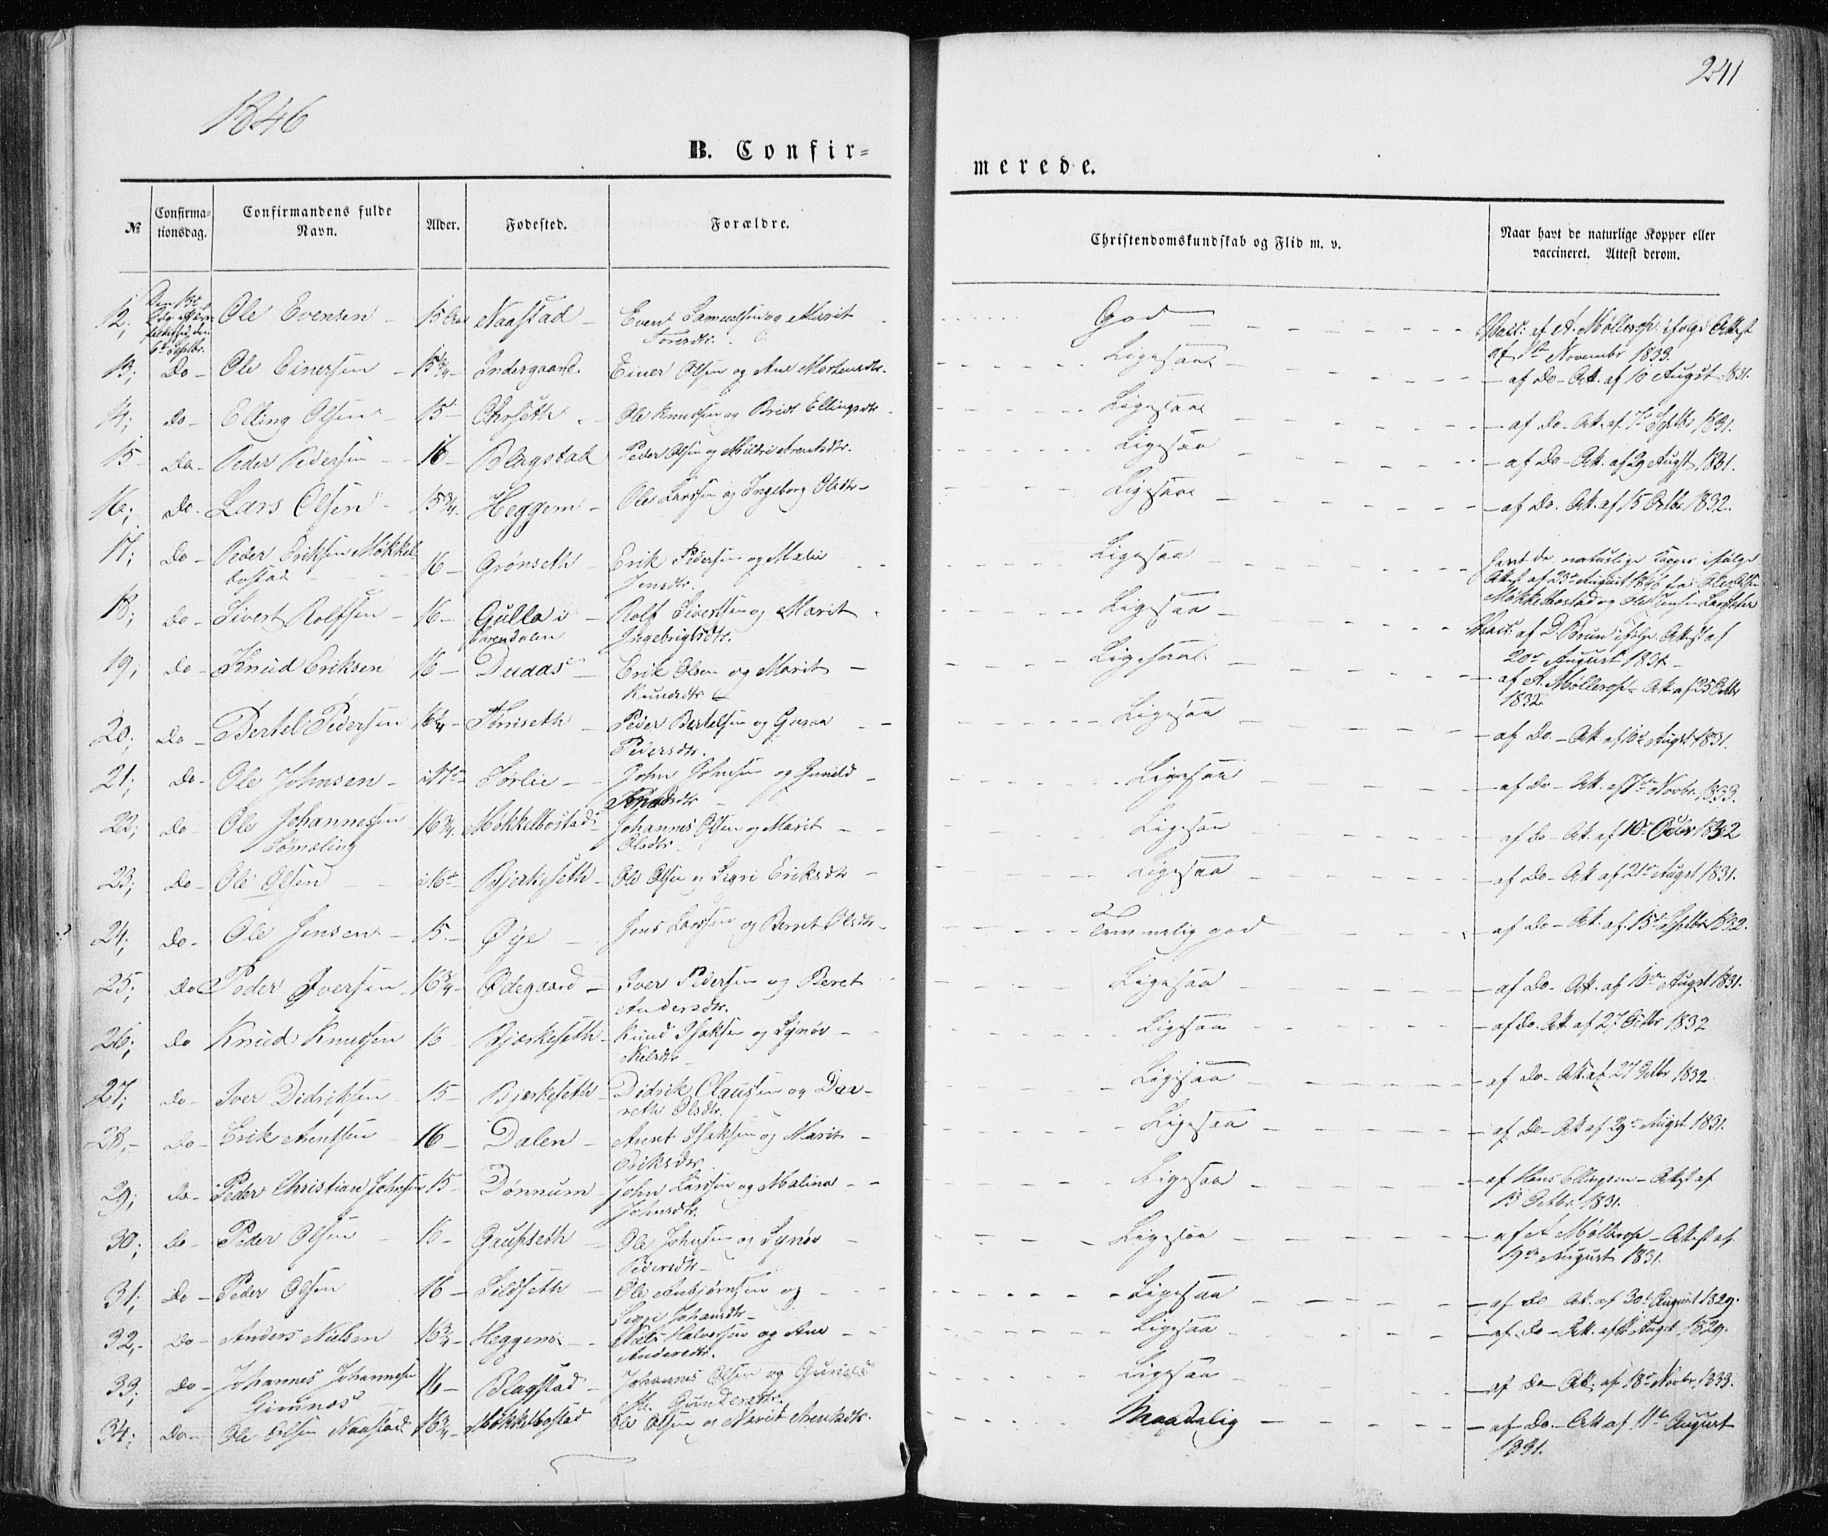 241
1846
B. Confir-
merede.
№
Confirma-
tionsdag.
Confirmandens fulde
Navn.
Alder.
Fødested.
Forældre.
Christendomskundskab og Flid m. v.
Naar havt de naturlige Kopper eller
vaccineret. Attest derom.
12, Ole Evensen 15 Naastad Even Samuelsen og Marit God af A. Møllerop ifølge Attest
af November 1833.
13; Do Ole Einersen 15 3/4 Indergaard Einer Olsen og Ane Mortensdtr. Ligesaa af Do Att. af 10 August 1831.
14; do Elling Olsen 15 Ole Knudsen og Brit Ellingsdtr Ligesaa af Do Att. af 7de Septbr 1831.
15 Do Peder Pedersen 16 Blagstad Peder Olsen og Arentsdtr. Ligesaa af Do Att. af 29 Augst 1831.
16; Do Lars Olsen 15 3/4 Heggem Ole Larsen og Ingeborg Olsdtr Ligesaa af Do. Att. af 15 Octbr 1832.
17; Do Peder Eriksen Møkkel-
bostad 16 Grønseth Erik Pedersen og Malie
Jensdtr. Ligesaa havt de naturlige Kopper ifølge
Attest af 23de August 1846 fra Ole Olsen
Møkkelbostad og Ole Jensen
18; Do Sivert Rolfsen 16 Gulla i
Rolf Sivertsen og Marit
Ingebrigtsdtr. Ligesaa af D. Bruun ifølge Attest af
20de August 1831
19; do Knud Eriksen 16 Dudaas Erik Olsen og Marit
Knudsdtr Ligesaa af A. Møllerop Att. af 25 Octbr
1832
20; Do Bertel Pedersen 16 1/4 Peder Bertelsen og
Pedersdtr. Ligesaa af Do Att. af 10de Augst 1831.
21; Do Ole Johnsen Sørlie John Johnsen og Gunild
Ligesaa af Do Att. af 7de Novbr. 1833.
22; do Ole Johannessen
16 3/4 Møkkelbostad Johannes Olsen og Marit
Olsdtr. Ligesaa af Do Att. af 10de 1832
23; Do Ole Olsen Bjerkeseth Ole Olsen og Sigri Eriksdtr Ligesaa af Do Att. af 21de Augst 1831.
24; Do Ole Jensen 15 Øye Jens Larsen og Beret Olsdtr Temmelig god af Do Att. af 15de Septbr 1832.
25; Do Peder Iversen 16 3/4 Ødegaard Iver Pedersen og Beret
Andersdtr. Ligesaa af Do Att. af 10de Augst 1831.
26; Do Knud Knudsen 16 Bjerkeseth Knud Isaksen og Synøv
Nielsdtr Ligesaa af Do. Att. af 27 Octbr 1832
27; Do Iver Didriksen 15 Bjerkeseth Didrik Clausen og Dor-
rethe Olsdtr. Ligesaa af Do Att. af 27 Octbr 1832
28, Do Erik Arentsen 16 Dalen Arent Isaksen og Marit
Eriksdtr Ligesaa af Do Att. af 29de Augst 1831.
29; do Peder Christian Johnsen 15 Dønnum John Larsen og Malina
Johnsdtr. Ligesaa af Hans Ellingsen Attest af
13 Octbr. 1831.
30; Do Peder Olsen 16 Gaupseth Ole Johnsen og Synøv
Pedersdtr Ligesaa af A Møllerop Attest af
19de August 1831.
31; Do Peder Olsen 16 Sildseth Ole Asbjørnsen og
Sigri Johansdtr. Ligesaa af Do Att. af 30te August 1829.
32, Do Anders Nielsen 16 3/4 Heggem Niels Halvorsen og Ane
Andersdtr. Ligesaa af Do Att. af Augst 1829.
33; Do Johannes Johannesen
Gimnæs 16 Blagstad Johannes Olsen og Gunild
Gundersdtr. Ligesaa af Do Att. af 18de Novbr. 1833.
34; Do Ole Olsen Naastad 16 3/4 Møkkelbostad Ole Olsen og Marit Arentsdtr. Maadelig af Do Att. af 11te August
1831.